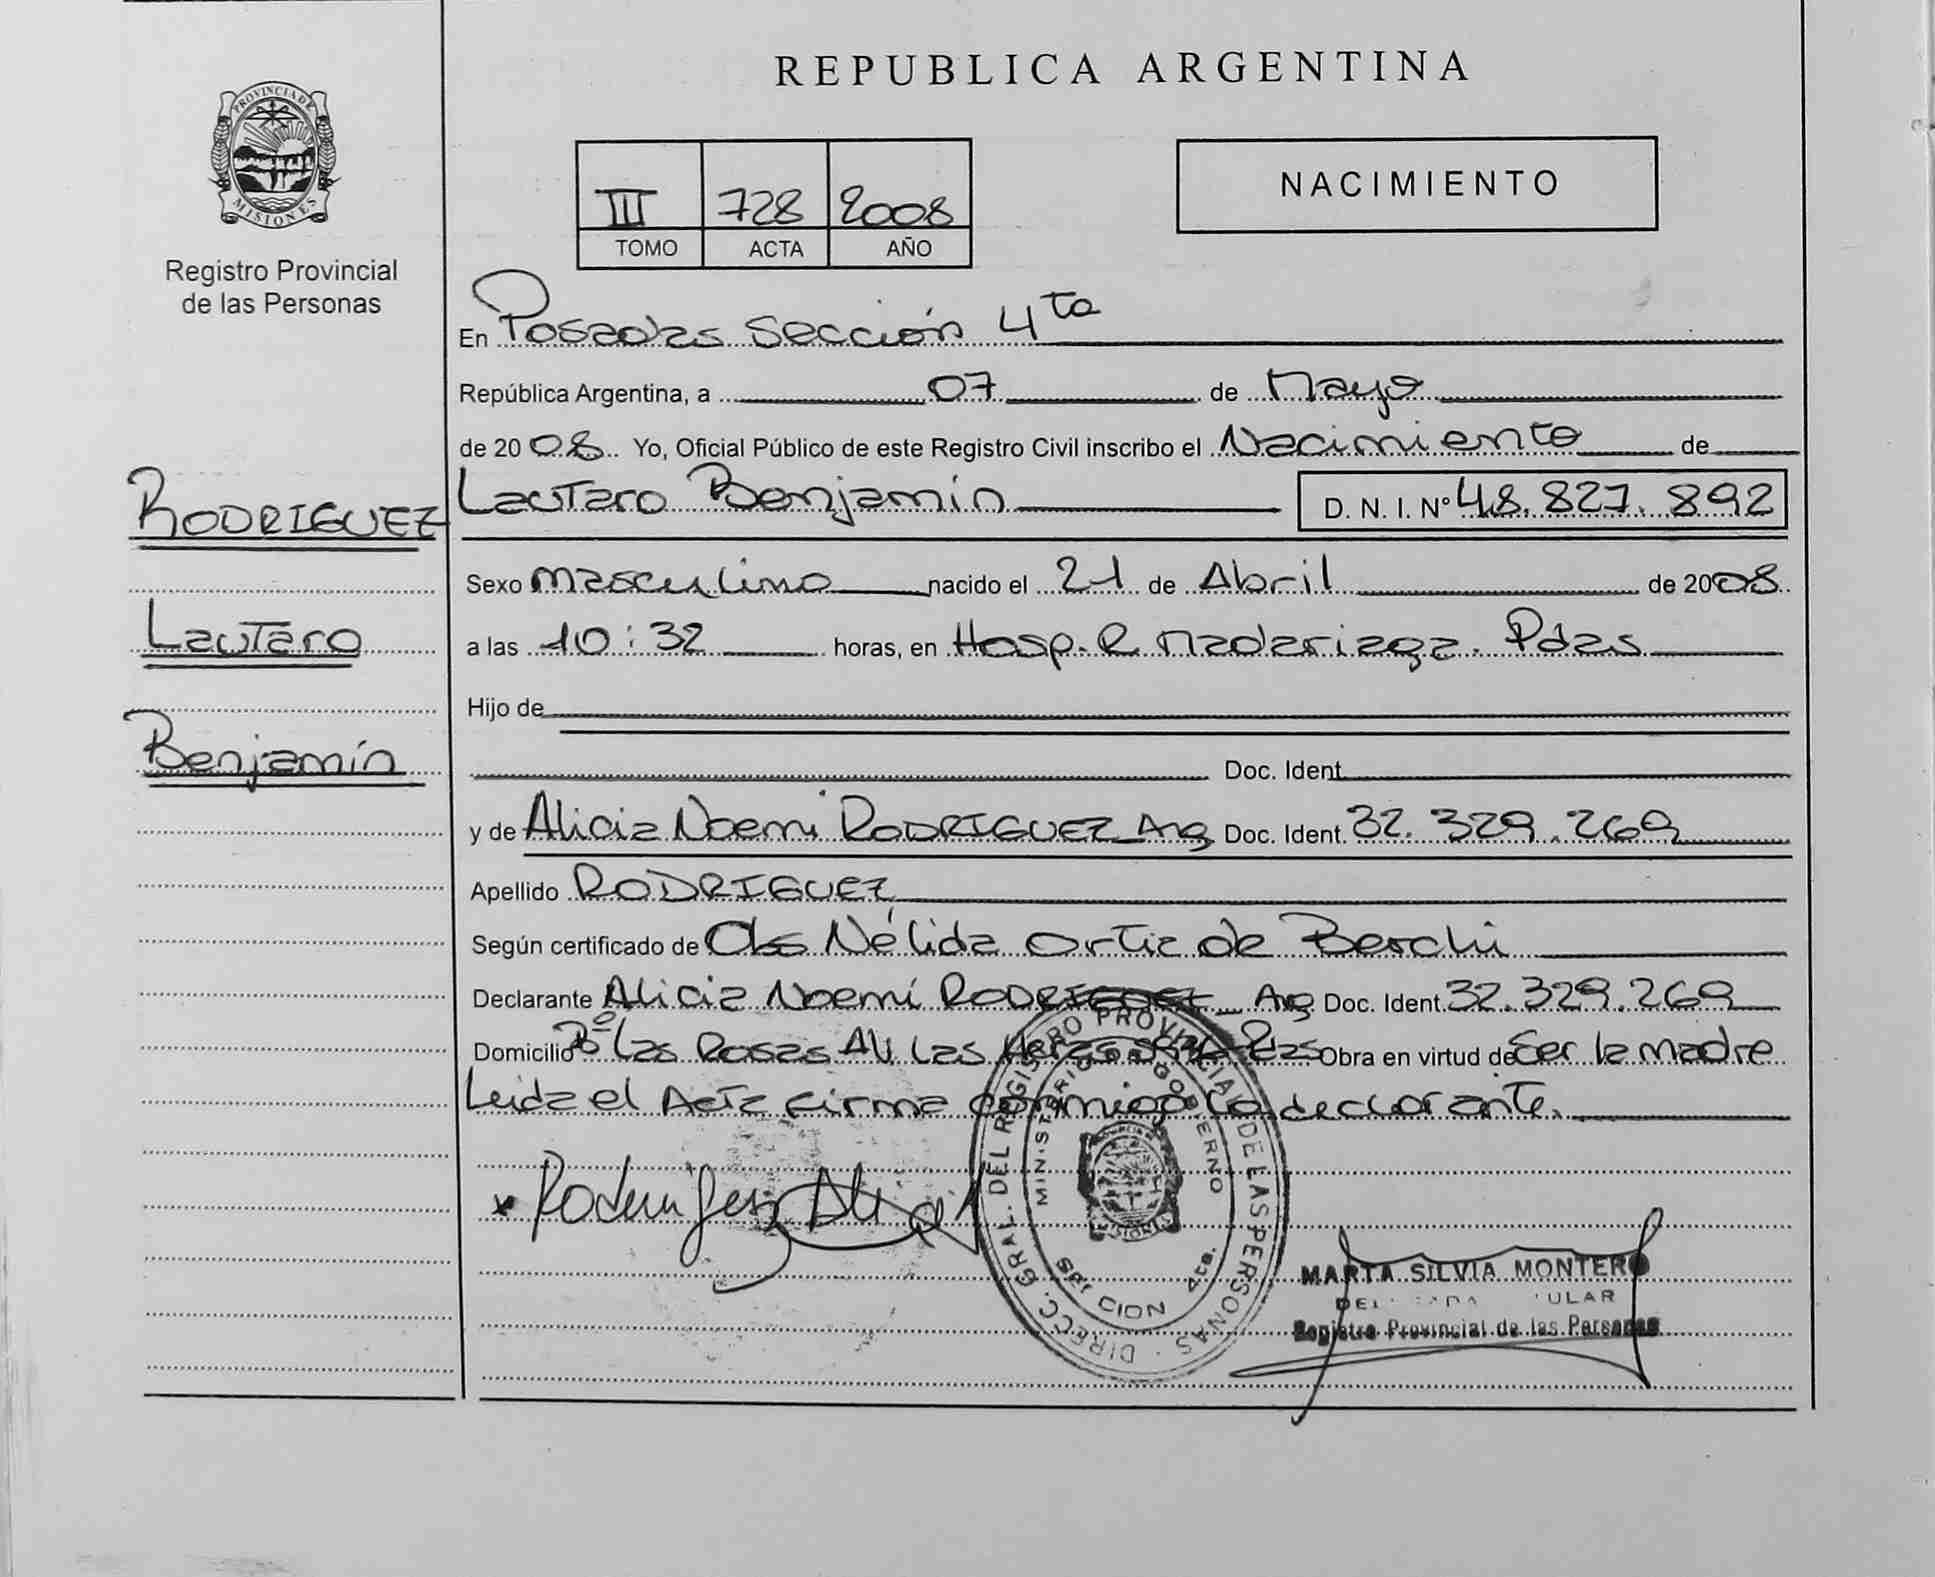 REPUBLICA ARGENTINA
PROVINCIA DE
MISIONES
Registro Provincial
de las Personas
III 728 2008
TOMO ACTA AÑO
NACIMIENTO
En Posadas Sección 4ta
República Argentina, a 07 de Mayo
de 2008 Yo, Oficial Público de este Registro Civil inscribo el Nacimiento de
RODRIGUEZ
Lautaro
Benjamín
Lautaro Benjamín D. N. I. Nº 48.827.892
Sexo masculino nacido el 21 de Abril de 2008
a las 10:32 horas, en Hosp. R. Madariaga. Pdas
Hijo de
Doc. Ident.
y de Alicia Noemi RODRIGUEZ Arg Doc. Ident. 32.329.269
Apellido RODRIGUEZ
Según certificado de Obs Nélida Ortiz de Beschi
Declarante Alicia Noemí RODRIGUEZ Arg Doc. Ident. 32.329.269
Domicilio Bº Las Rosas Av. Las Heras Pdas Obra en virtud de Ser la madre
Leida el Acta firma conmigo la declarante.
x Rodriguez Alicia
DIRECC. GRAL. DEL REGISTRO PROVINCIAL DE LAS PERSONAS
MINISTERIO GOBIERNO
4ta.
MARTA SILVIA MONTERO
Registro Provincial de las Personas